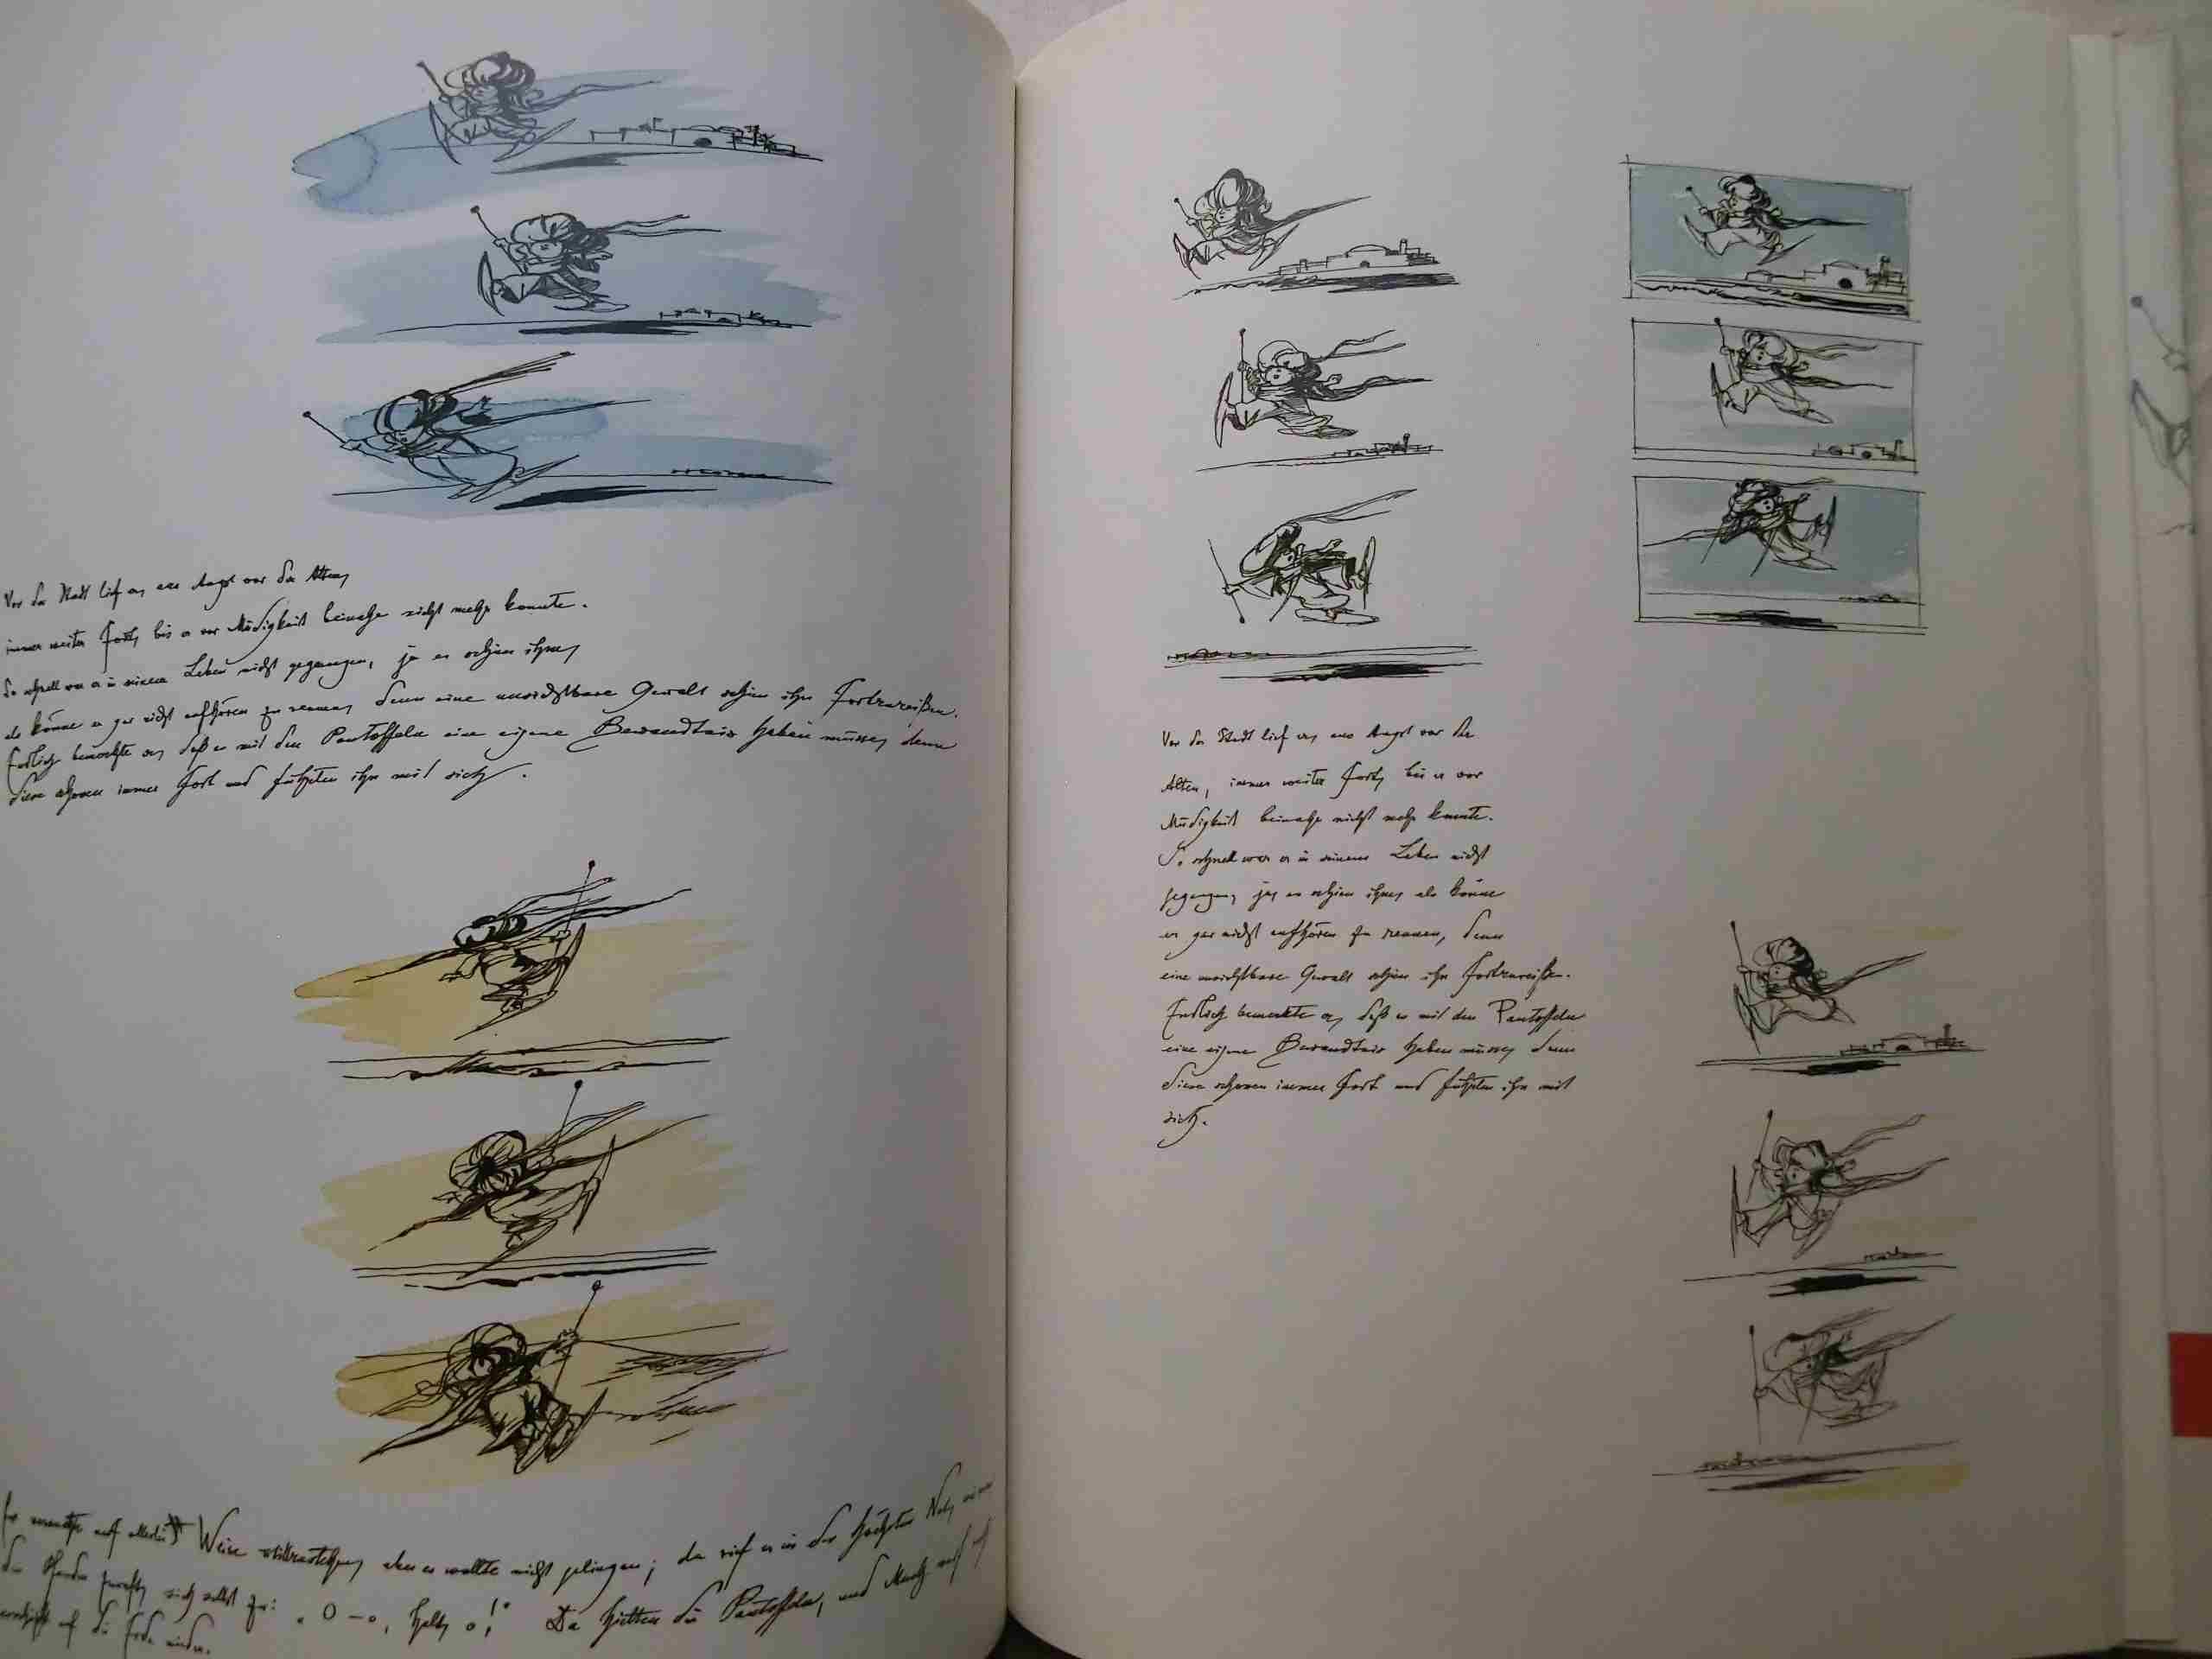 Vor der Stadt lief er, aus Angst vor der Alten,
immer weiter fort, bis er vor Müdigkeit beinahe nicht mehr konnte.
So schnell war er in seinem Leben nicht gegangen, ja es schien ihm,
als könne er gar nicht aufhören zu rennen, denn eine unsichtbare Gewalt schien ihn fortzureißen.
Endlich bemerkte er, daß es mit den Pantoffeln eine eigene Bewandtnis haben müsse, denn
diese schossen immer fort und führten ihn mit sich.
Er versuchte auf allerlei Weise stillzustehen, aber es wollte nicht gelingen; da rief er in der höchsten Not, wie
die Pferde zuruft, sich selbst zu: „O – o, halt, o!“ Da hielten die Pantoffeln, und Muck warf sich
erschöpft auf die Erde nieder.
Vor der Stadt lief er, aus Angst vor der
Alten, immer weiter fort, bis er vor
Müdigkeit beinahe nicht mehr konnte.
So schnell war er in seinem Leben nicht
gegangen, ja, es schien ihm, als könne
er gar nicht aufhören zu rennen, denn
eine unsichtbare Gewalt schien ihn fortzureißen.
Endlich bemerkte er, daß es mit den Pantoffeln
eine eigene Bewandtnis haben müsse, denn
diese schossen immer fort und führten ihn mit
sich.